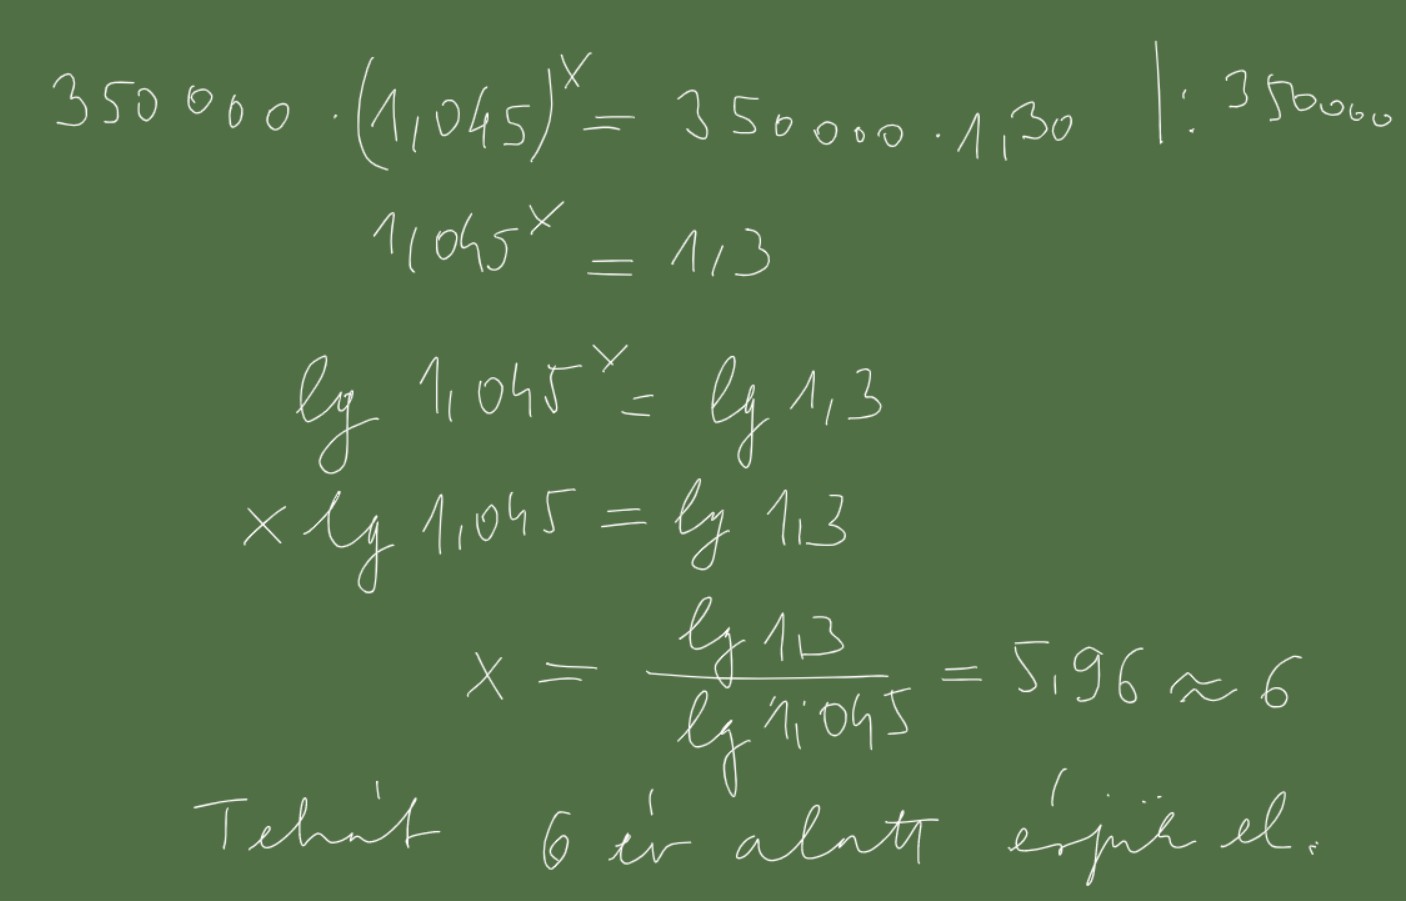 350000 · (1,045)^x = 350000 · 1,30 | : 350000
1,045^x = 1,3
lg 1,045^x = lg 1,3
x lg 1,045 = lg 1,3
x = lg 1,3 / lg 1,045 = 5,96 ≈ 6
Tehát 6 év alatt érjük el.